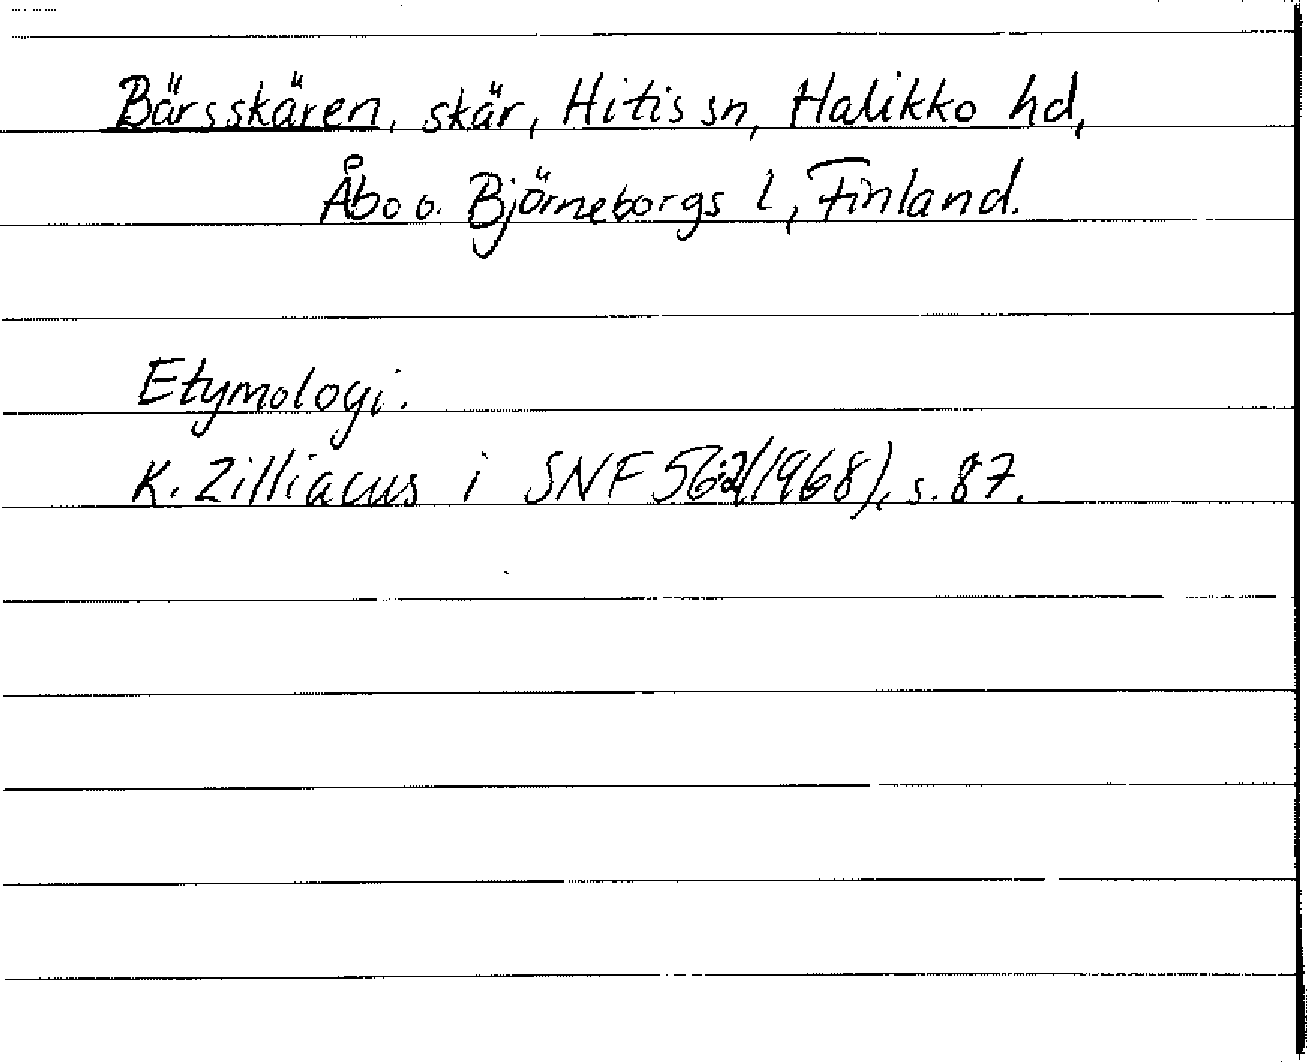 Bärsskären, skär, Hitis sn, Halikko hd,
Åbo o. Björneborgs l, Finland.
Etymologi.
K. Zilliacus i SNF 56:2(1968), s. 87.